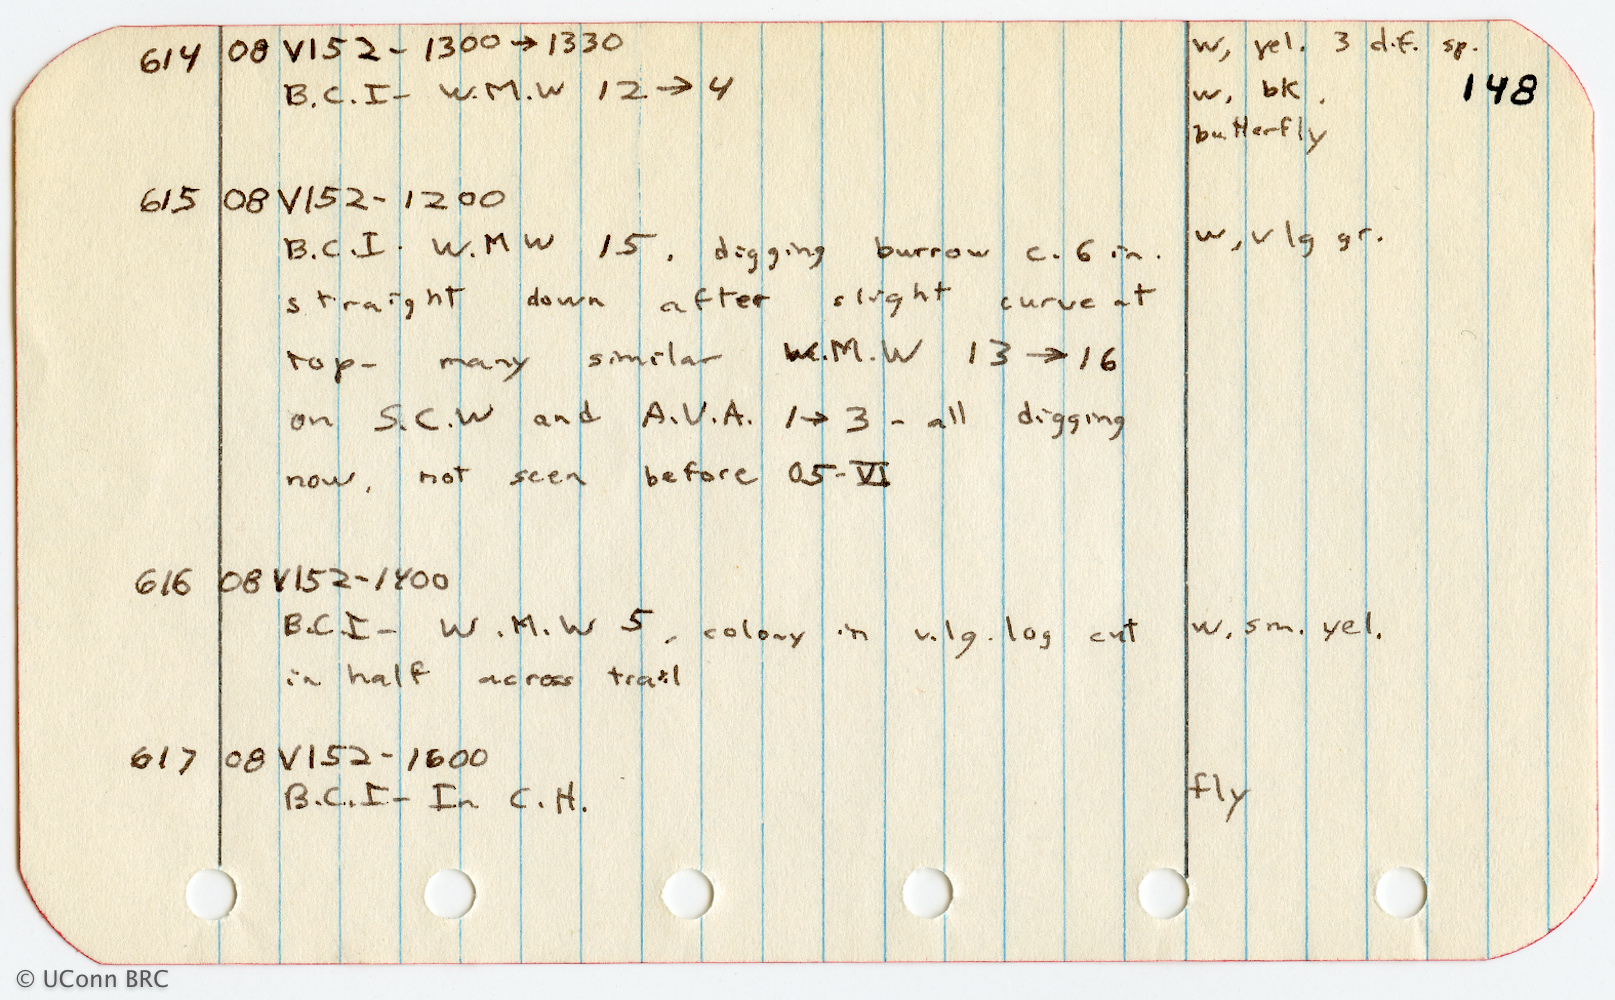 614 08 VI 52 - 1300 → 1330 w, yel. 3 dif. sp.
B.C.I - W.M.W 12 → 4 w, bk. 148
butterfly
615 08 VI 52 - 1200
B.C.I. W.M W 15, digging burrow c. 6 in. w, v lg gr.
straight down after slight curve at
top - many similar W.M.W 13 → 16
on S.C.W and A.V.A. 1 → 3 - all digging
now, not seen before 05-VI
616 08 VI 52 - 1400
B.C.I - W.M.W 5, colony in v.lg. log cut w, sm. yel.
in half across trail
617 08 VI 52 - 1600
B.C.I - In C.H. fly
© UConn BRC